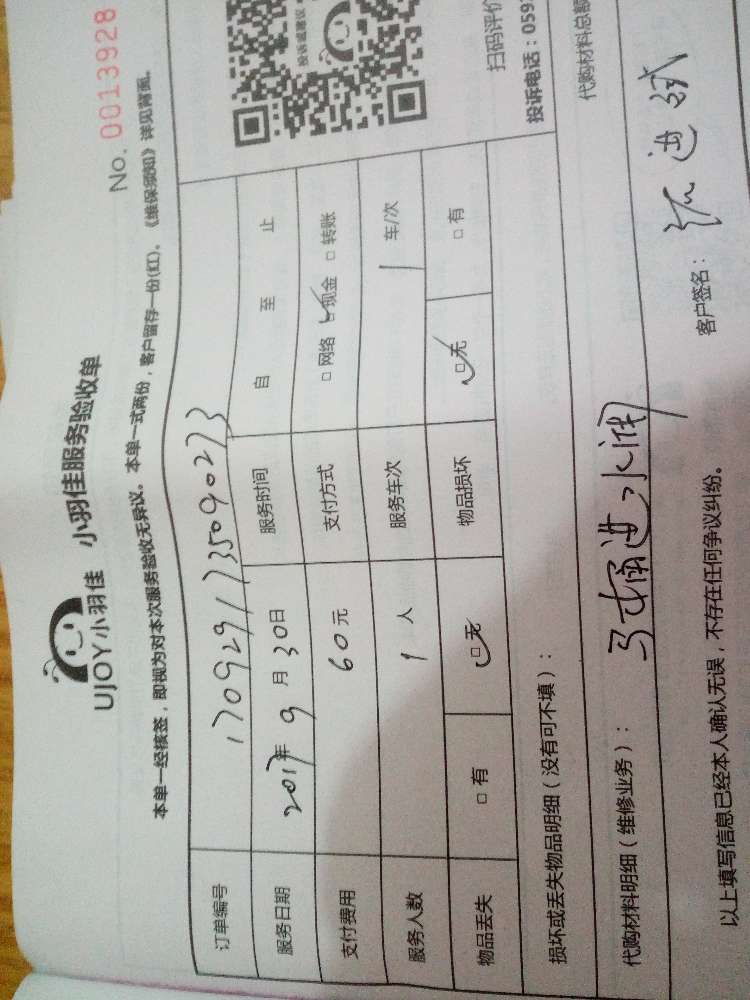 UJOY小羽佳 小羽佳服务验收单
No. 0013928
本单一经核签，即视为对本次服务验收无异议。本单一式两份，客户留存一份(红)。《维保须知》详见背面。
订单编号 1709291735090273
服务日期 2017年 9月 30日 服务时间 自 至 止
支付费用 60元 支付方式 □网络 ☑现金 □转账
服务人数 1人 服务车次 1车/次
物品丢失 □有 ☑无 物品损坏 ☑无 □有
投诉或建议
扫码评价
投诉电话：059
损坏或丢失物品明细（没有可不填）：
代购材料明细（维修业务）： 马桶进水阀
代购材料总额
以上填写信息已经本人确认无误，不存在任何争议纠纷。
客户签名：